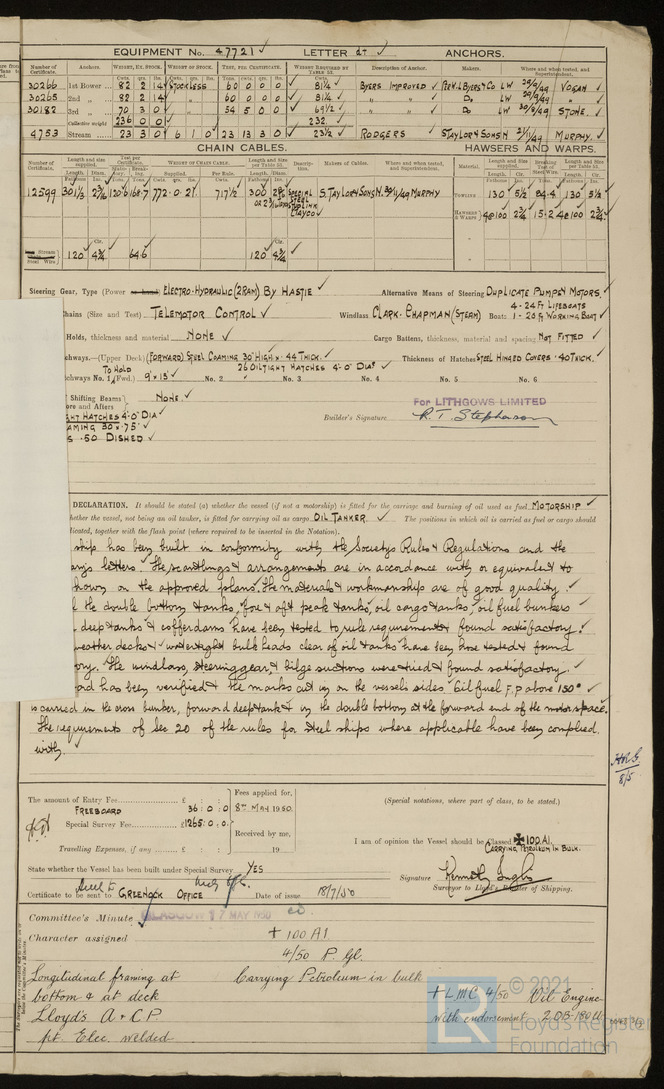 EQUIPMENT No. 47721 ✓ LETTER 2† ✓ ANCHORS.
Number of Certificate. Anchors. WEIGHT, EX. STOCK. WEIGHT OF STOCK. TEST, PER CERTIFICATE. WEIGHT REQUIRED BY TABLE 53. Description of Anchor. Makers. Where and when tested, and Superintendent.
Cwts. qrs. lbs. Cwts. qrs. lbs. Tons. cwts. qrs. lbs. Cwts.
30266 1st Bower 82 2 14 STOCKLESS 60 0 0 0 81¼ ✓ BYERS IMPROVED ✓ LW VOGAN ✓
30265 2nd „ 82 2 14 60 0 0 0 81¼ ✓ „ „ ✓ Do LW ✓
30182 3rd „ 70 3 0 54 5 0 0 69½ ✓ „ „ ✓ Do LW STONE. ✓
Collective weight 236 0 0 232.
4753 Stream 23 3 0 6 1 0 23 13 3 0 23½ ✓ RODGERS ✓ S TAYLOR & SONS MURPHY. ✓
CHAIN CABLES. HAWSERS AND WARPS.
Number of Certificate. Length and size supplied. Test per Certificate. WEIGHT OF CHAIN CABLE. Length and size per Table 53. Description. Makers of Cables. Where and when tested, and Superintendent. Material. Length and size supplied. Breaking Test of Steel Wire. Length and size per Table 53.
12599 301⅓ 2 3/16 120.6 168.7 772.0.21 717½ 300 SPECIAL STEEL STUD LINK TAYCO ✓ S. TAYLOR & SONS N. 30/11/49 MURPHY TOWLINE 130 5½ 84.4 130 5½
HAWSERS & WARPS 4@100 2¾ 15.2 4@100 2¾
Steel Wire 120 4¾ 64.6 120 4¾
Steering Gear, Type (Power ELECTRO-HYDRAULIC (2RAM) BY HASTIE ✓ Alternative Means of Steering DUPLICATE PUMPS & MOTORS. ✓
Chains (Size and Test) TELEMOTOR CONTROL ✓ Windlass CLARK-CHAPMAN (STEAM) Boats 4-24 FT LIFEBOATS 1-20 FT WORKING BOAT ✓
Holds, thickness and material NONE ✓ Cargo Battens, thickness, material and spacing NOT FITTED ✓
chways.—(Upper Deck) (FORWARD) STEEL COAMING 30" HIGH × .44 THICK. ✓ Thickness of Hatches STEEL HINGED COVERS .40 THICK. ✓
TO HOLD 26 OILTIGHT HATCHES 4'-0" DIAR ✓
chways No. 1 (Fwd.) 9' × 13' ✓ No. 2 No. 3 No. 4 No. 5 No. 6
Shifting Beams NONE. ✓
ore and Afters
GHT HATCHES 4'-0" DIA
AMING 30" × .75" ✓
S .50 DISHED ✓
FOR LITHGOWS LIMITED
Builder's Signature R. T. Stephenson
DECLARATION. It should be stated (a) whether the vessel (if not a motorship) is fitted for the carriage and burning of oil used as fuel MOTORSHIP ✓
hether the vessel, not being an oil tanker, is fitted for carrying oil as cargo OIL TANKER ✓ The positions in which oil is carried as fuel or cargo should
licated, together with the flash point (where required to be inserted in the Notation).
ship has been built in conformity with the Societys Rules & Regulations and the
arys letters. The scantlings & arrangements are in accordance with or equivalent to
hown on the approved plans. The materials & workmanship are of good quality. ✓
f the double bottom tanks, fore & aft peak tanks, oil cargo tanks, oil fuel bunkers
deep tanks & cofferdams have been tested to rule requirements & found satisfactory. ✓
weather decks & watertight bulkheads clear of oil tanks have been hose tested & found
ory. The windlass, steering gear, & bilge suctions were tried & found satisfactory. ✓
ard has been verified & the marks cut in on the vessels sides. Oil fuel F.P above 150° ✓
is carried in the cross bunker, forward deep tank & in the double bottom at the forward end of the motor space.
The requirements of Sec 20 of the rules for Steel ships where applicable have been complied
with.
8/5
The amount of Entry Fee £ : : Fees applied for,
FREEBOARD 36 : 0 : 0 8TH MAY 1950.
Special Survey Fee £1265 : 0 : 0 Received by me,
Travelling Expenses, if any £ : : 19
(Special notations, where part of class, to be stated.)
I am of opinion the Vessel should be Classed ✠100A1.
CARRYING PETROLEUM IN BULK.
State whether the Vessel has been built under Special Survey YES
Signature Kenneth Inglis
Surveyor to Lloyd's Register of Shipping.
Certificate to be sent to GREENOCK OFFICE Date of issue 18/7/50
Committee's Minute GLASGOW 17 MAY 1950
Character assigned + 100 A1
4/50 P. Gl.
Longitudinal framing at Carrying Petroleum in bulk
bottom & at deck + LMC 4/50 Oil Engine
Lloyd's A & C.P. with endorsement 2 DB 180 lb
pt. Elec. welded
LR © 2021
Lloyd's Register
Foundation